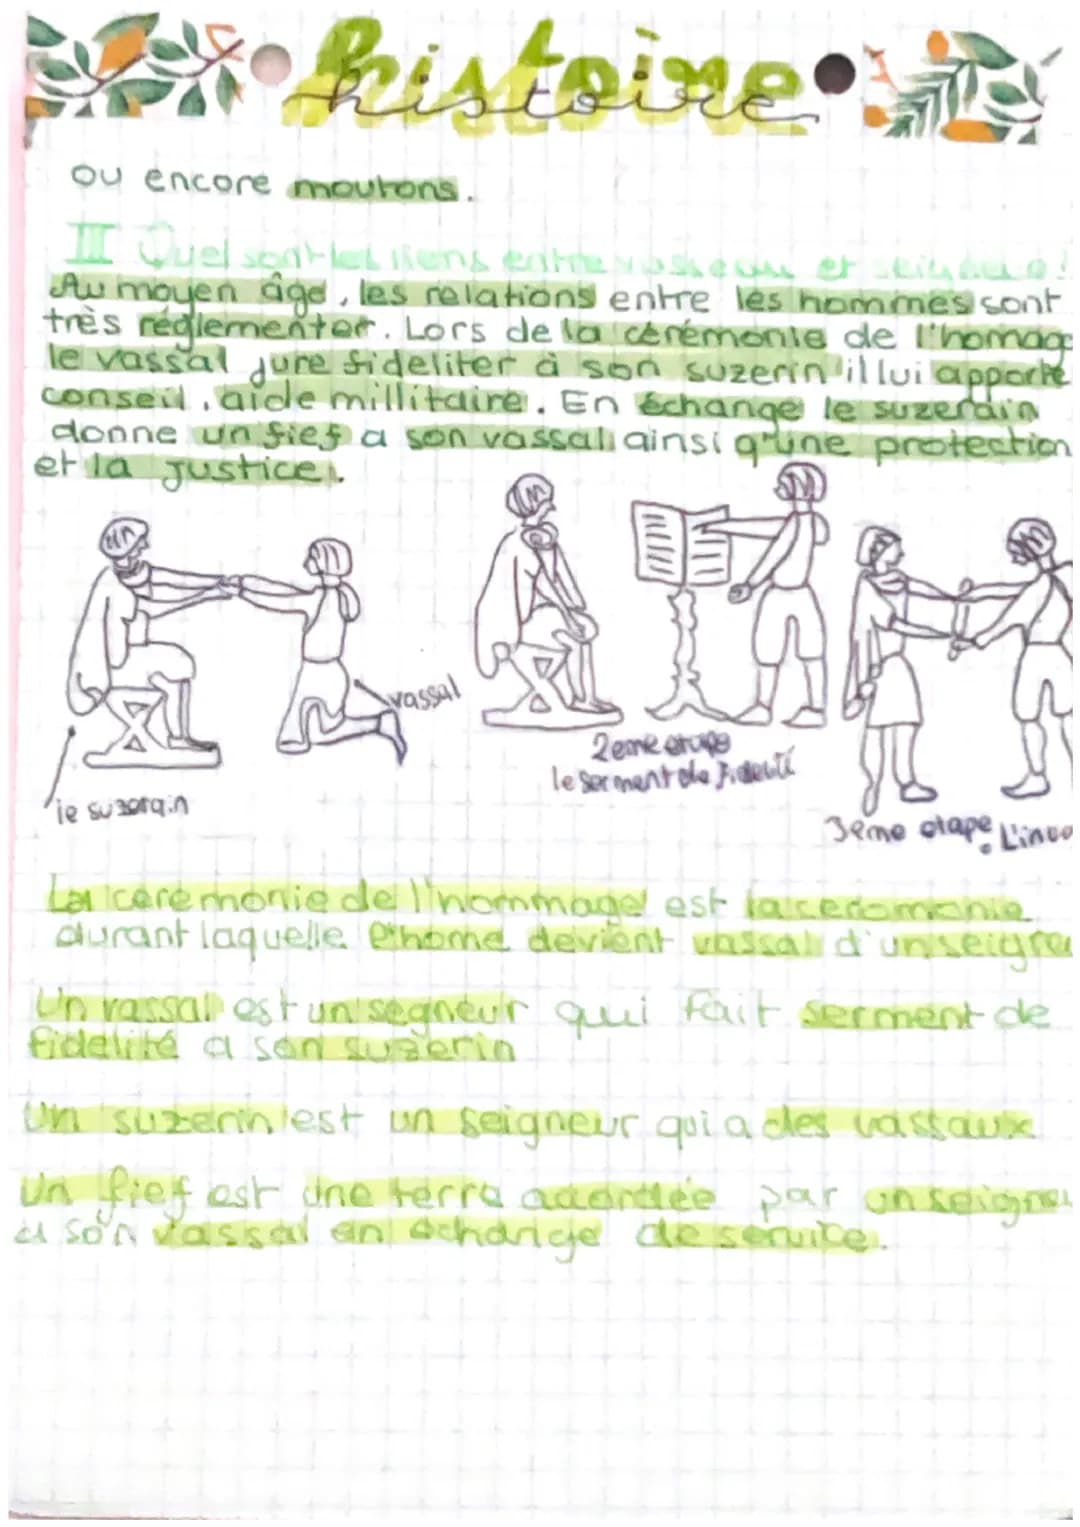 histoire
ou encore moutons.
III Quel sont les liens entre vasseaux et seigneur
Au moyen âge, les relations entre les hommes sont
très réglementer. Lors de la cérémonie de l'homag
le vassal jure fideliter à son suzerin il lui apporte
conseil, aide millitaire. En échange le suzerain
donne un fief a son vassal ainsi q'une protection
et la justice.
vassal
le suzerain
2eme etape
le serment de Fidelité
3eme etape
La ceremonie de l'hommage est la ceromonie
durant laquelle l'home devient vassal d'un seigneu
Un vassal est un segneur qui fait serment de
fidelité a son suzerin
Un suzerin est un seigneur qui a des vassaux
Un fief est une terre accordée par un seigneu
a son vassal en échange de service.